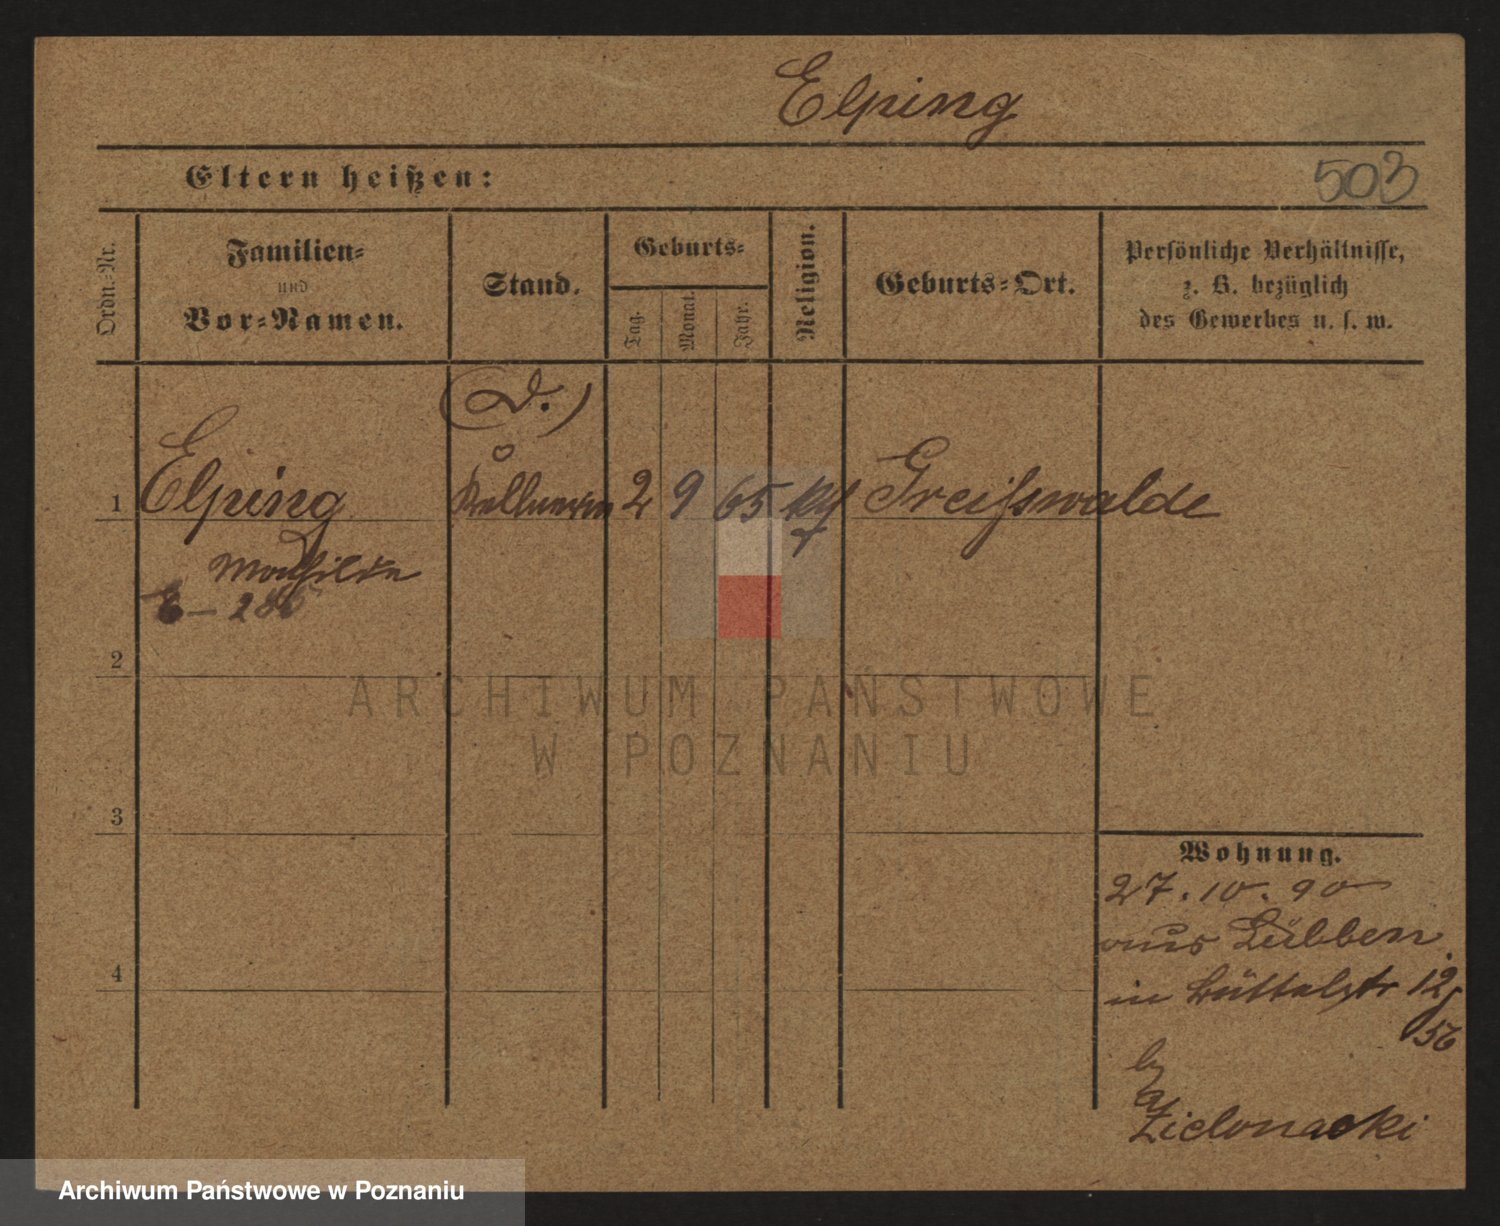 Elping
Eltern heißen:
503
Ordn.-Nr.
Familien-
und
Vor-Namen.
Stand.
Geburts-
Tag.
Monat.
Jahr.
Religion.
Geburts-Ort.
Persönliche Verhältnisse,
z. B. bezüglich
des Gewerbes u. s. w.
(D.)
1 Elping Kellnerin 2 9 65 Greifswalde
Mathilde
E - 286
2
3
4
Wohnung.
27.10.90
aus Lübben
in Büttelstr 12/
56
by
Zielonacki
ARCHIWUM PAŃSTWOWE
W POZNANIU
Archiwum Państwowe w Poznaniu